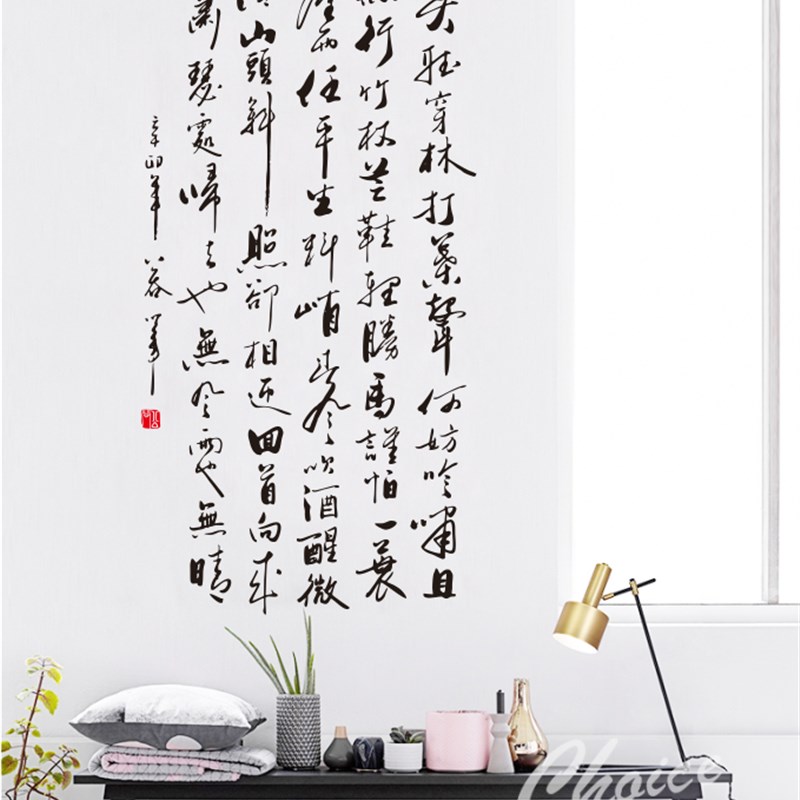 聽穿林打葉聲何妨吟嘯且
行竹杖芒鞋輕勝馬誰怕一蓑
煙雨任平生料峭春風吹酒醒微
冷山頭斜照卻相迎回首向來
蕭瑟處歸去也無風雨也無晴
辛卯年
Choice